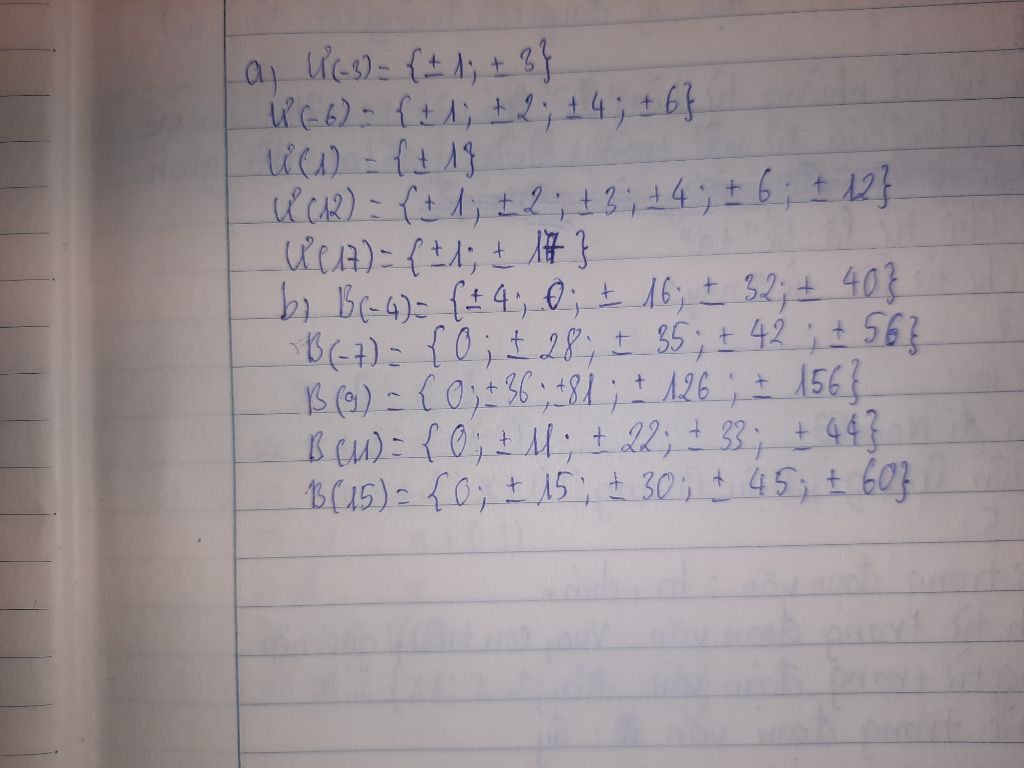 a) Ư(-3) = {± 1; ± 3}
Ư(-6) = {± 1; ± 2; ± 4; ± 6}
Ư(1) = {± 1}
Ư(12) = {± 1; ± 2; ± 3; ± 4; ± 6; ± 12}
Ư(17) = {± 1; ± 17}
b) B(-4) = {± 4; 0; ± 16; ± 32; ± 40}
B(-7) = {0; ± 28; ± 35; ± 42; ± 56}
B(9) = {0; ± 36; ±81; ± 126; ± 156}
B(11) = {0; ± 11; ± 22; ± 33; ± 44}
B(15) = {0; ± 15; ± 30; ± 45; ± 60}